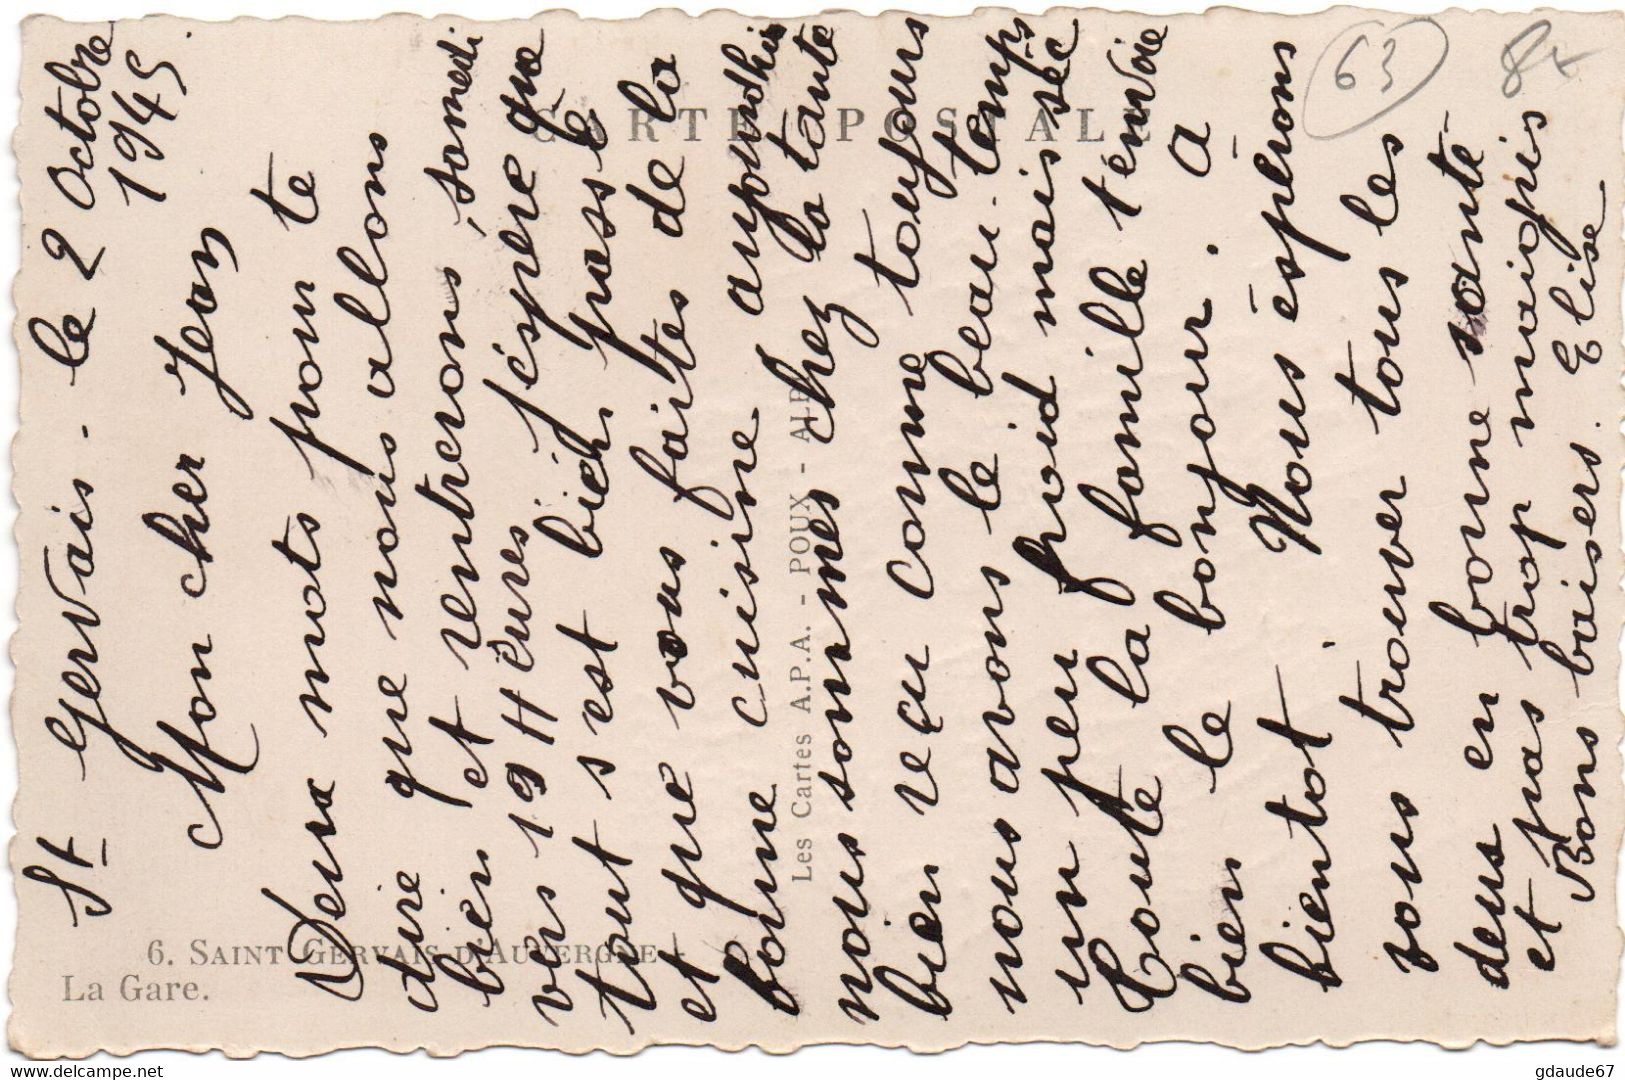 St Gervais - le 2 Octobre
1945.
Mon cher Jean
Deux mots pour te
dire que nous allons
bien et rentrerons, samedi
vers 19 Heures j'éspère que
tout s'est bien passé
et que vous faites de la
bonne cuisine aujourdhui
nous sommes chez la tante
bien reçu comme toujours
nous avons le beau-temps
un peu froid mais sec
Toute la famille t'envoie
bien le bonjour. A
bientot. Nous éspérons
vous trouver tous les
deux en bonne santé-
et pas trop maigris
Bons baisers. Elise
CARTE POSTALE
Les Cartes A.P.A. - POUX - ALBI
6. SAINT GERVAIS-D'AUVERGNE -
La Gare.
63
8x
delcampe.net
gdaude67